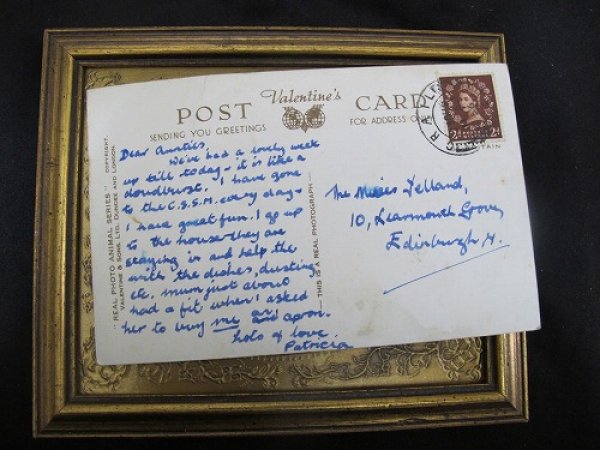 POST Valentine's CARD
SENDING YOU GREETINGS
FOR ADDRESS ON
"REAL PHOTO ANIMAL SERIES" COPYRIGHT.
VALENTINE & SONS, LTD. DUNDEE AND LONDON.
THIS IS A REAL PHOTOGRAPH
Dear Aunties,
We've had a lovely week
up till today - it is like a
cloudburst. I have gone
to the C.S.S.M. every day -
I have great fun. I go up
to the house they are
staying in and help the
with the dishes, dusting
etc. Mum just about
had a fit when I asked
her to buy me an apron.
Lots of love.
Patricia
The Misses Lelland,
10, Learmonth Grove,
Edinburgh 4.
2d 2d